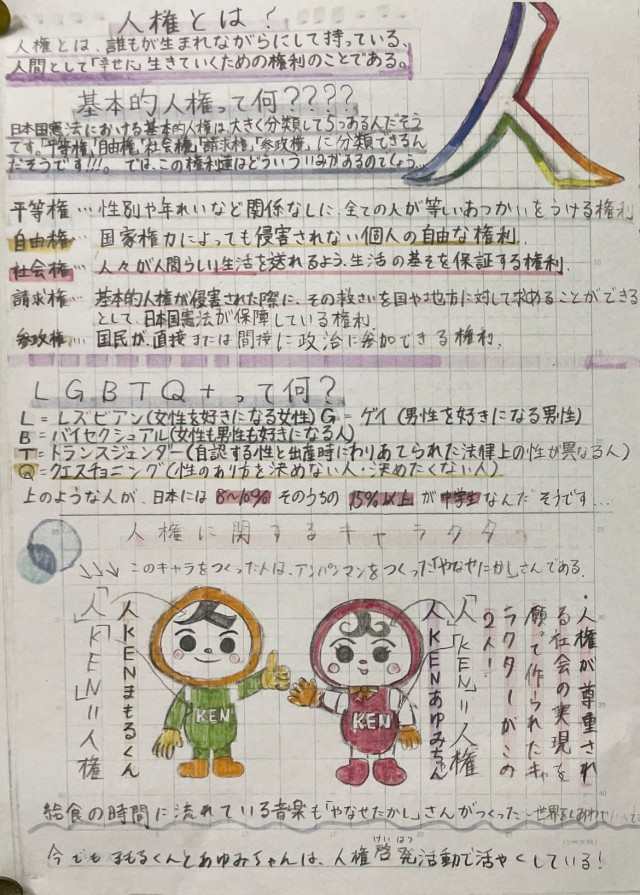 人権とは?
人権とは、誰もが生まれながらにして持っている、
人間として「幸せに」生きていくための権利のことである。
人
基本的人権って何????
日本国憲法における基本的人権は大きく分類して5つあるんだそう
です。「平等権」「自由権」「社会権」「請求権」「参政権」に分類できるん
だそうです!!!。では、この権利達はどういういみがあるのでしょう…
平等権…性別や年れいなど関係なしに、全ての人が等しいあつかいをうける権利
自由権…国家権力によっても侵害されない個人の自由な権利.
社会権…人々が人間らしい生活を送れるよう、生活の基そを保証する権利.
請求権…基本的人権が侵害された際に、その救さいを国や地方に対して求めることができる
として、日本国憲法が保障している権利
参政権…国民が、直接または間接に政治に参加できる権利.
LGBTQ+って何?
L=レズビアン(女性を好きになる女性) G=ゲイ(男性を好きになる男性)
B=バイセクシュアル(女性も男性も好きになる人)
T=トランスジェンダー(自認する性と出産時にわりあてられた法律上の性が異なる人)
Q=クエスチョニング(性のあり方を決めない人・決めたくない人)
上のような人が、日本には8~10%そのうちの15%以上が中学生なんだそうです…
人権に関するキャラクター
このキャラをつくった人は、アンパンマンをつくった「やなせたかし」さんである.
・人権が尊重され
る社会の実現を
願って作られたキャ
ラクターがこの
2人!
「人」「KEN」=人権
人KENあゆみちゃん
人KENまもるくん
「人」「KEN」=人権
KEN
KEN
給食の時間に流れている音楽も「やなせたかし」さんがつくった
今でもまもるくんとあゆみちゃんは、人権啓発活動で活やくしている!
けいはつ